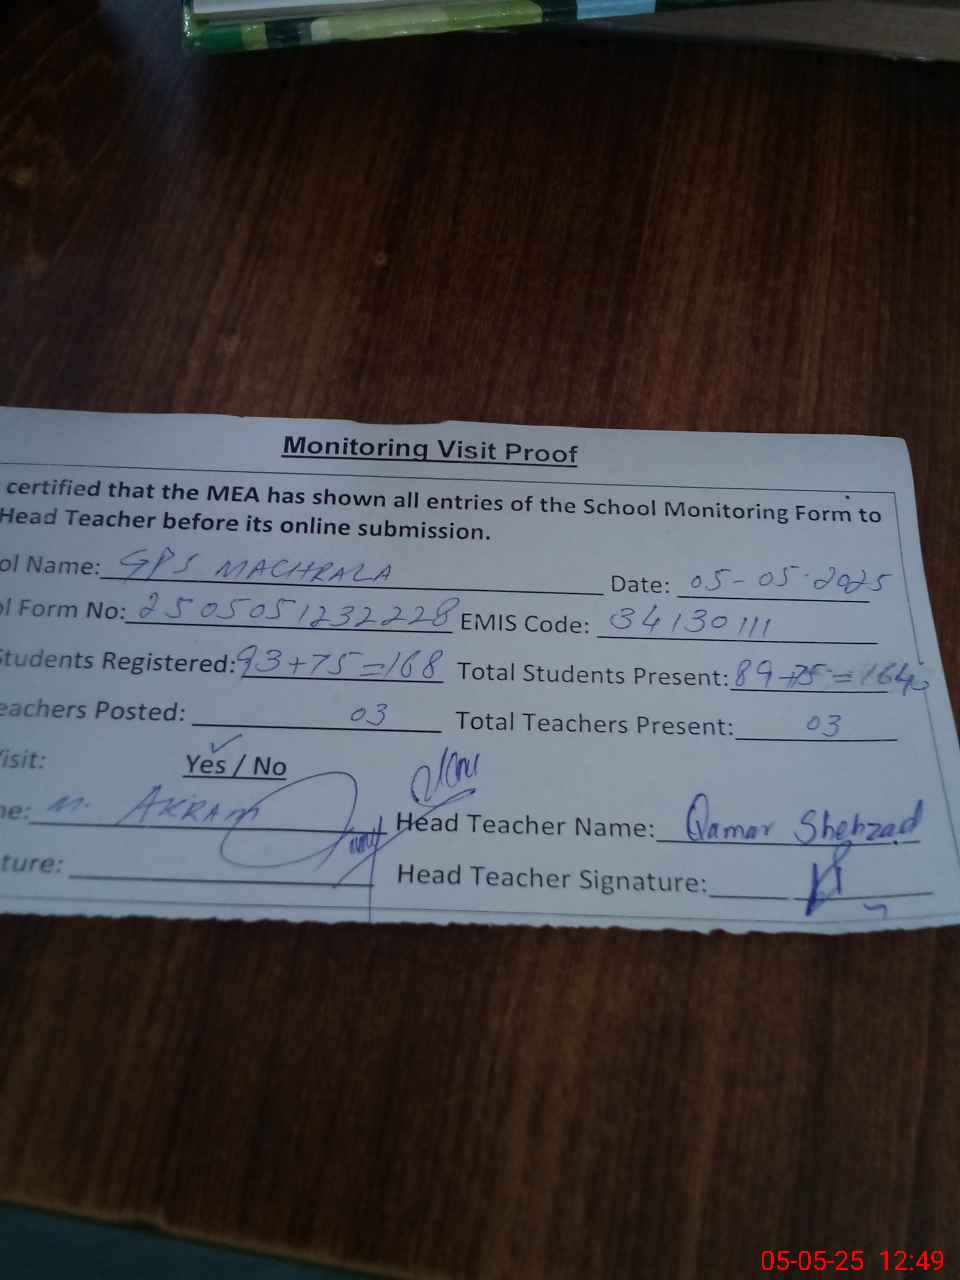 Monitoring Visit Proof
certified that the MEA has shown all entries of the School Monitoring Form to
Head Teacher before its online submission.
ol Name: GPS MACHRALA Date: 05-05-2025
ol Form No: 2505051232228 EMIS Code: 34130111
Students Registered: 93+75=168 Total Students Present: 89+75=164
eachers Posted: 03 Total Teachers Present: 03
isit: Yes / No
ne: M. AKRAM Head Teacher Name: Qamar Shehzad
ture: Head Teacher Signature:
05-05-25 12:49